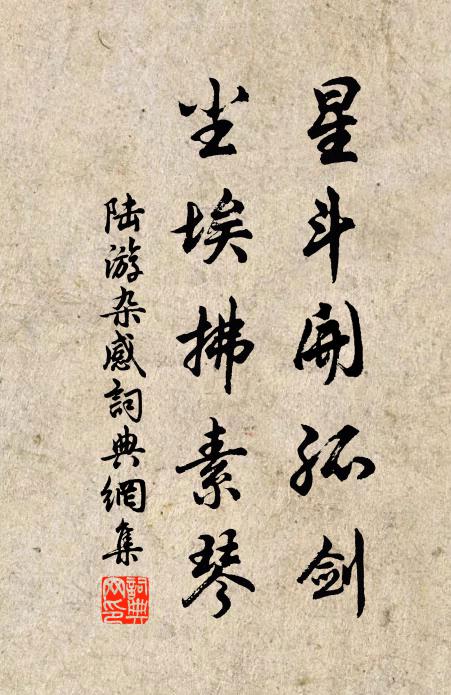 星斗开孤剑
尘埃拂素琴
陆游杂感詞典網集
詞典网印